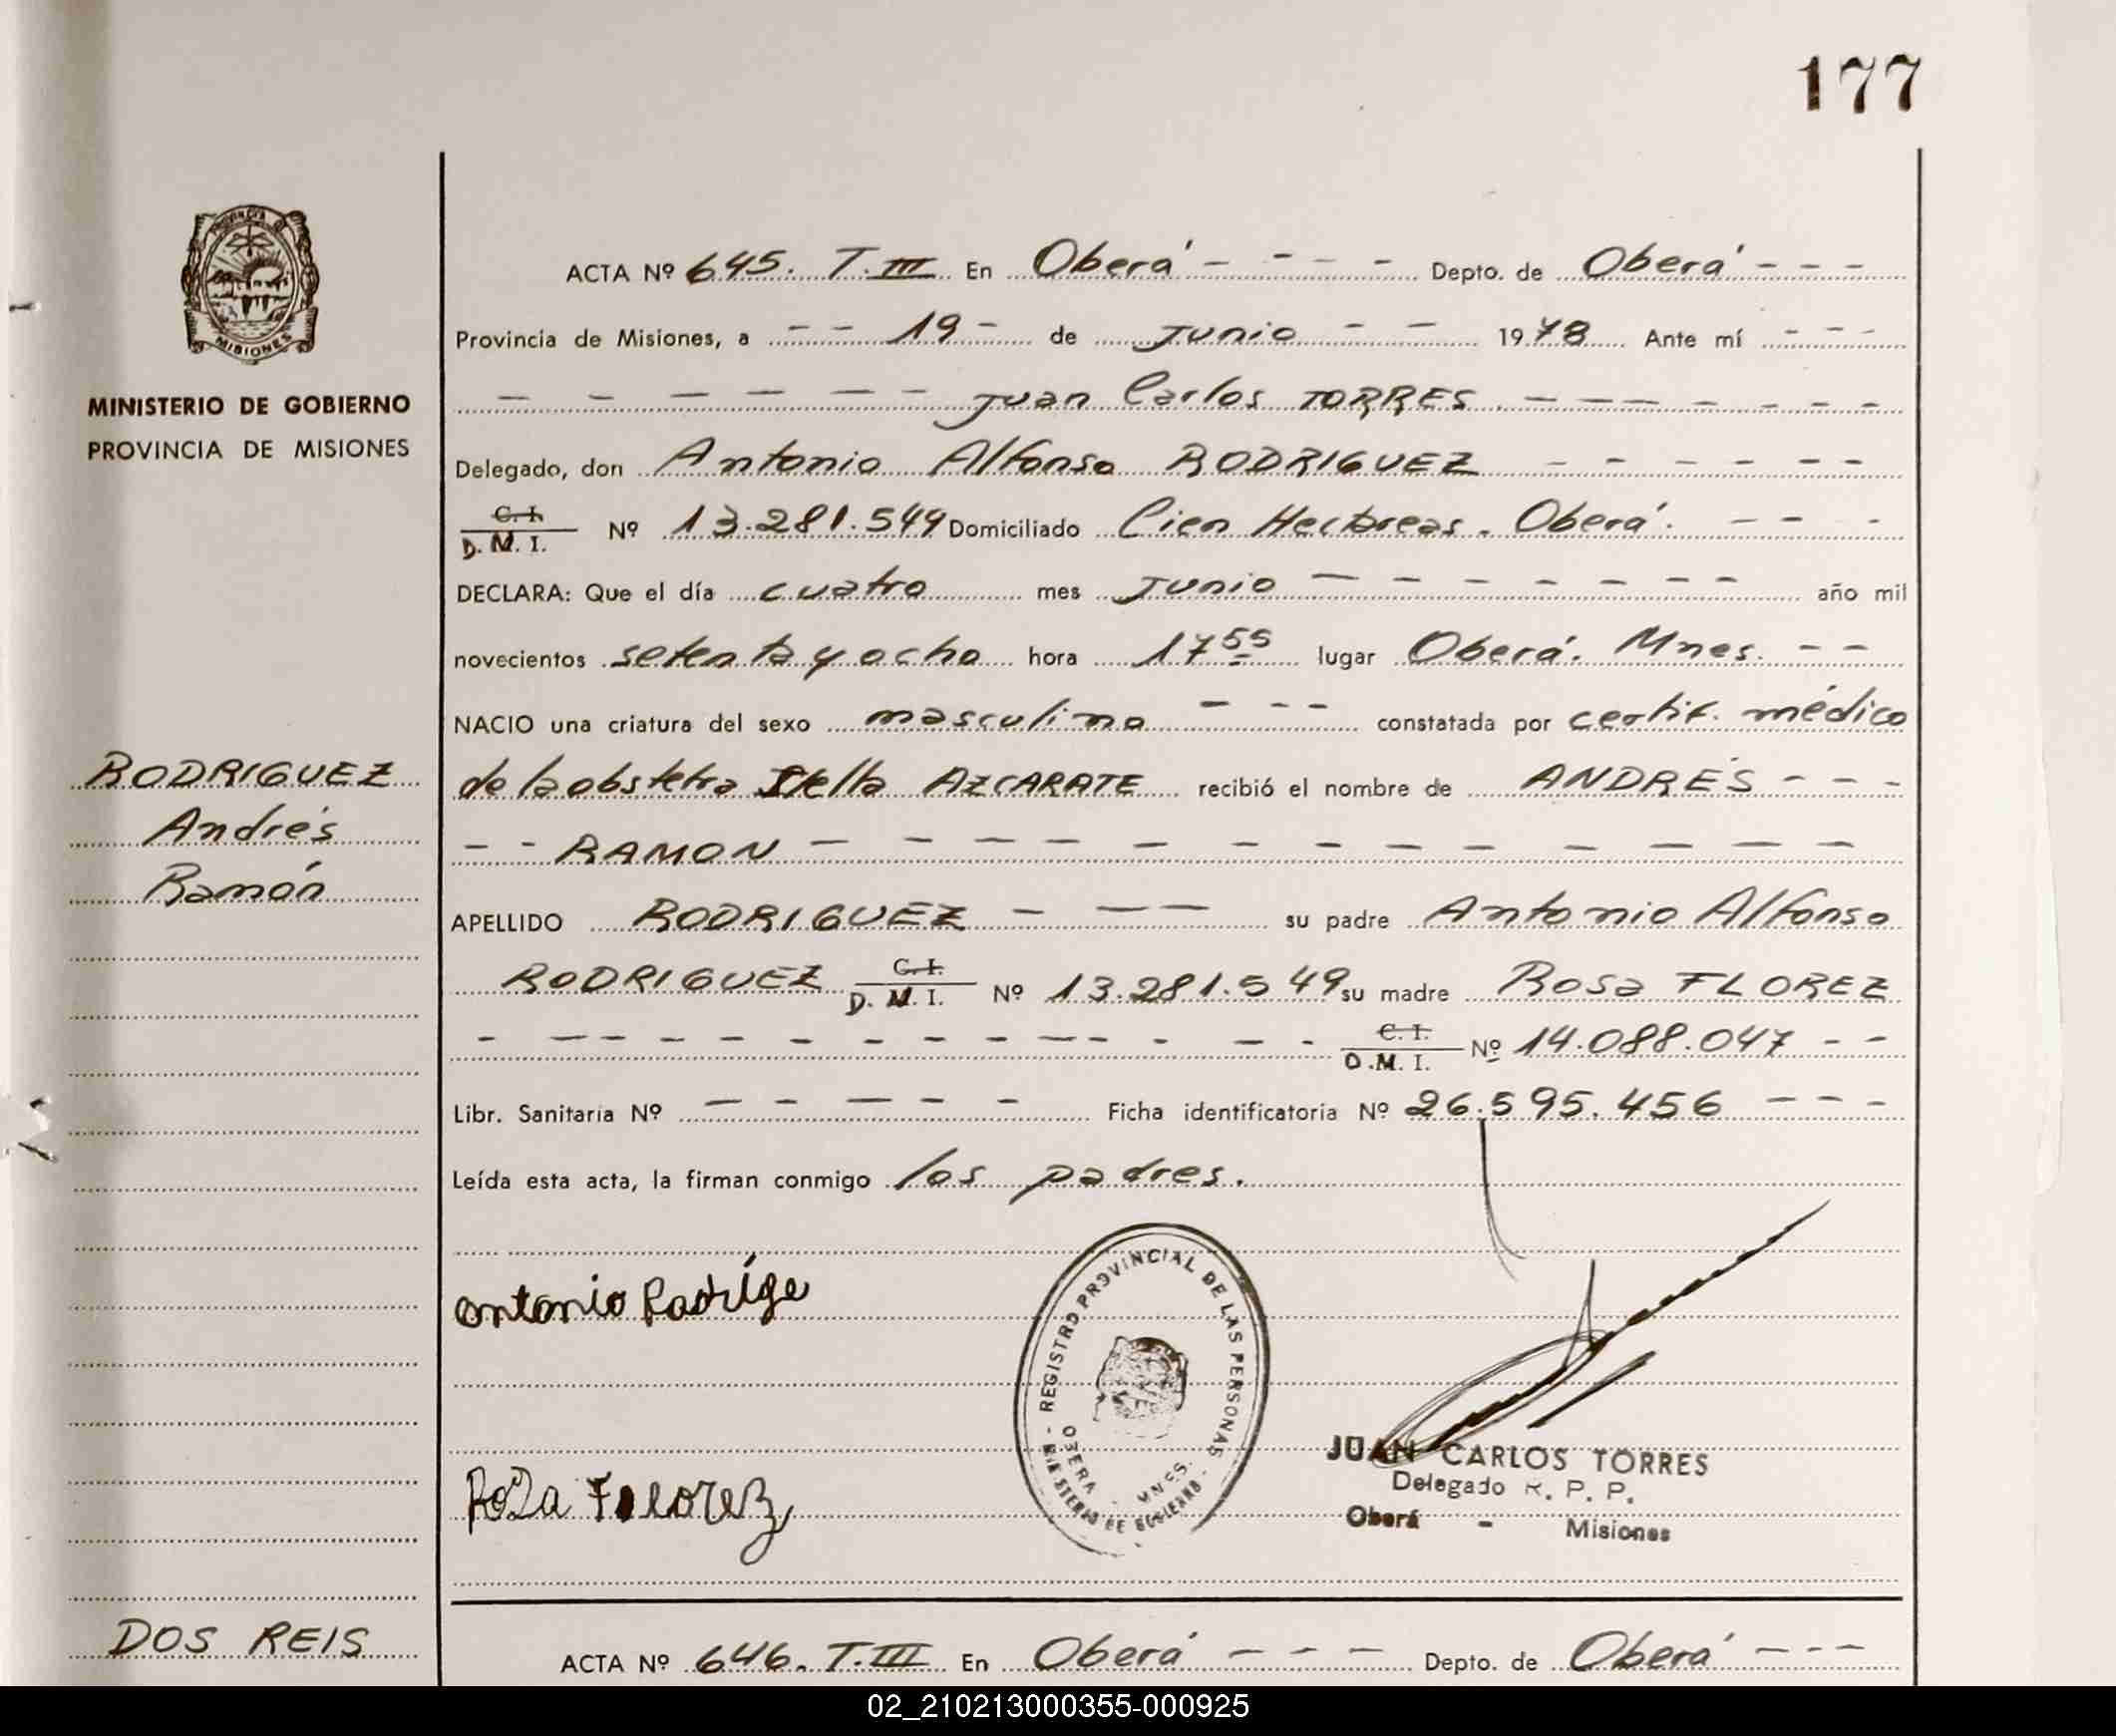 177
PROVINCIA DE
MISIONES
MINISTERIO DE GOBIERNO
PROVINCIA DE MISIONES
RODRIGUEZ
Andrés
Ramón
ACTA Nº 645. T. III En Oberá - - - - Depto. de Oberá - - -
Provincia de Misiones, a - - 19 - de Junio - - 1978 Ante mí - - -
- - - - - - Juan Carlos TORRES - - - - - - -
Delegado, don Antonio Alfonso RODRIGUEZ - - - - - -
C. I.
D. M. I. Nº 13.281.549 Domiciliado Cien Hectareas. Oberá. - - -
DECLARA: Que el día cuatro mes Junio - - - - - - - año mil
novecientos setenta y ocho hora 17 55 lugar Oberá. Mnes. - -
NACIO una criatura del sexo masculino - - - constatada por certif. médico
de la obstetra Stella AZCARATE recibió el nombre de ANDRÉS - - -
- - RAMON - - - - - - - - - - - - -
APELLIDO RODRIGUEZ - - - su padre Antonio Alfonso
RODRIGUEZ C. I.
D. M. I. Nº 13.281.549 su madre Rosa FLOREZ
- - - - - - - - - - - - - - C. I.
D. M. I. Nº 14.088.047 - -
Libr. Sanitaria Nº - - - - - Ficha identificatoria Nº 26.595.456 - - -
Leída esta acta, la firman conmigo los padres.
antonio Radríge
REGISTRO PROVINCIAL DE LAS PERSONAS - MINISTERIO DE GOBIERNO -
OBERA - MNES.
Roza Fllorez
JUAN CARLOS TORRES
Delegado R. P. P.
Oberá - Misiones
DOS REIS
ACTA Nº 646. T. III En Oberá - - - Depto. de Oberá - - -
02_210213000355-000925